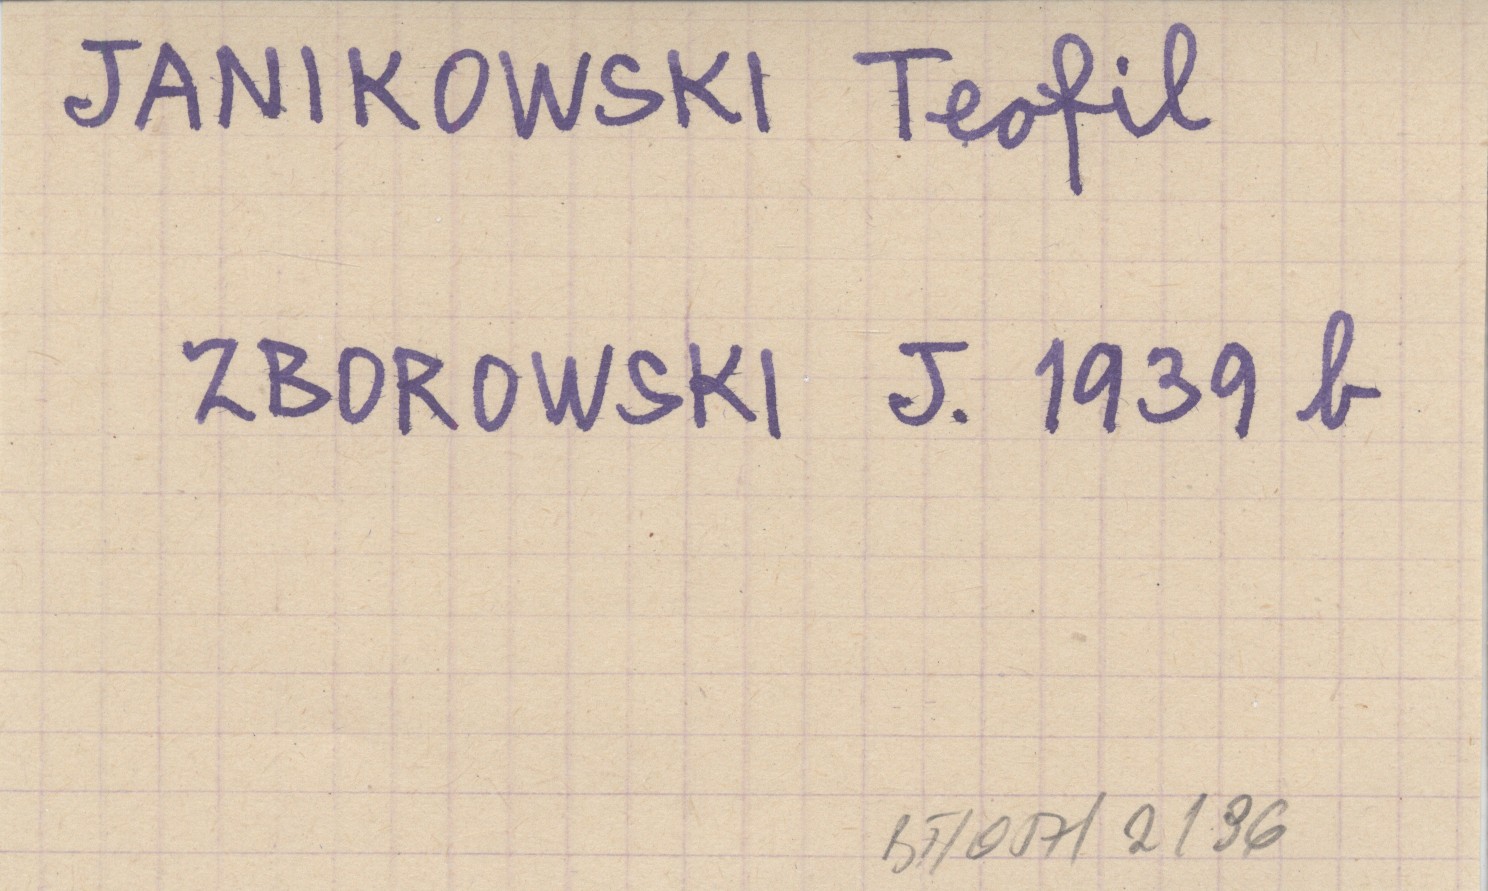 JANIKOWSKI Teofil
ZBOROWSKI J. 1939 b
BT/057/2/96